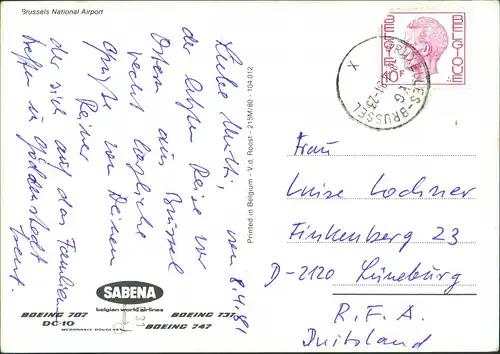 Brussels National Airport
Liebe Mutti, 8.4.81
der letzten Reise vor
Ostern aus Brüssel
recht herzliche
Grüße von Deinem
Reiner
der sich auf das Familien
treffen in
freut.
Printed in Belgium - V.d. Roost - 215M/80 - 104.012
SABENA
belgian world airlines
BOEING 707
BOEING 737
DC-10
MCDONNELL DOUGLAS
BOEING 747
BELGIQUE
BELGIE
10F
BRUXELLES-BRUSSEL
X
Frau
Luise Lochner
Finkenberg 23
D-2120 Lüneburg
R.F.A.
Duitsland